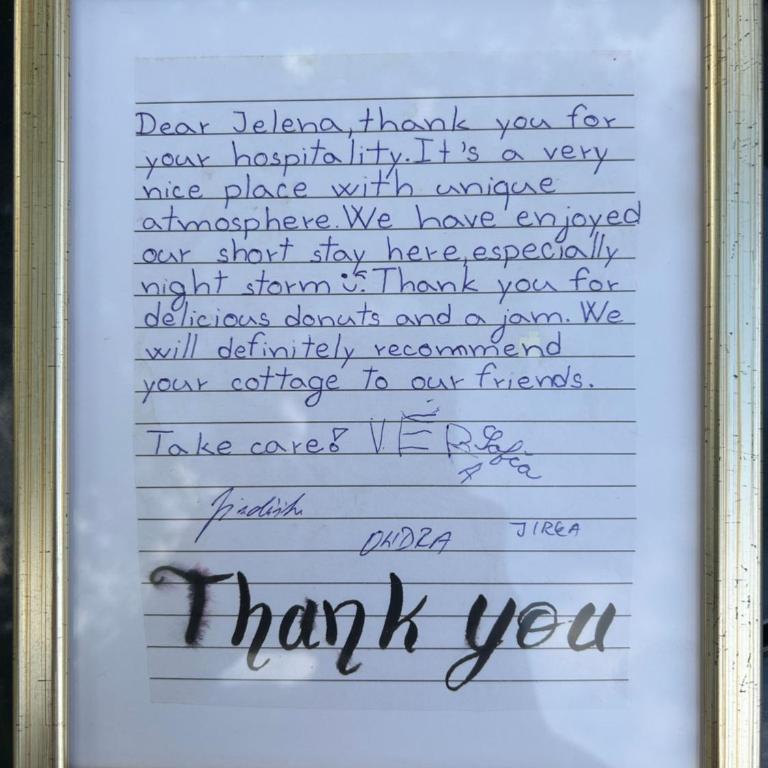 Dear Jelena, thank you for
your hospitality. It's a very
nice place with unique
atmosphere. We have enjoyed
our short stay here, especially
night storm :) Thank you for
delicious donuts and a jam. We
will definitely recommend
your cottage to our friends.
Take care! VÉRA
JIRKA
Thank you